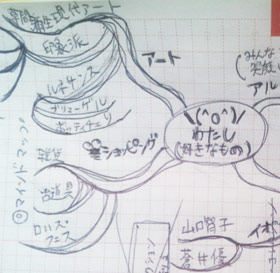 現代アート
印象派
ルネサンス
ブリューゲル
ボッティチェリ
アート
\(^o^)/
わたし
(好きなもの)
(みんな
アル
ショッピング
雑貨
古道具
ロハスフェス
◎マインドマップ
山口智子
蒼井優
イオ